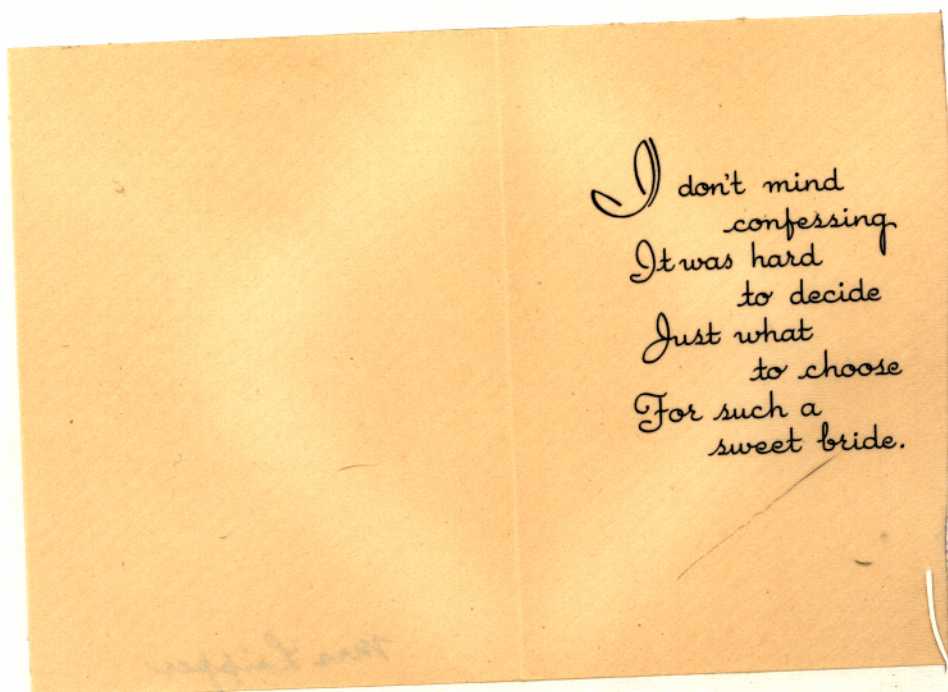 I don't mind
confessing
It was hard
to decide
Just what
to choose
For such a
sweet bride.